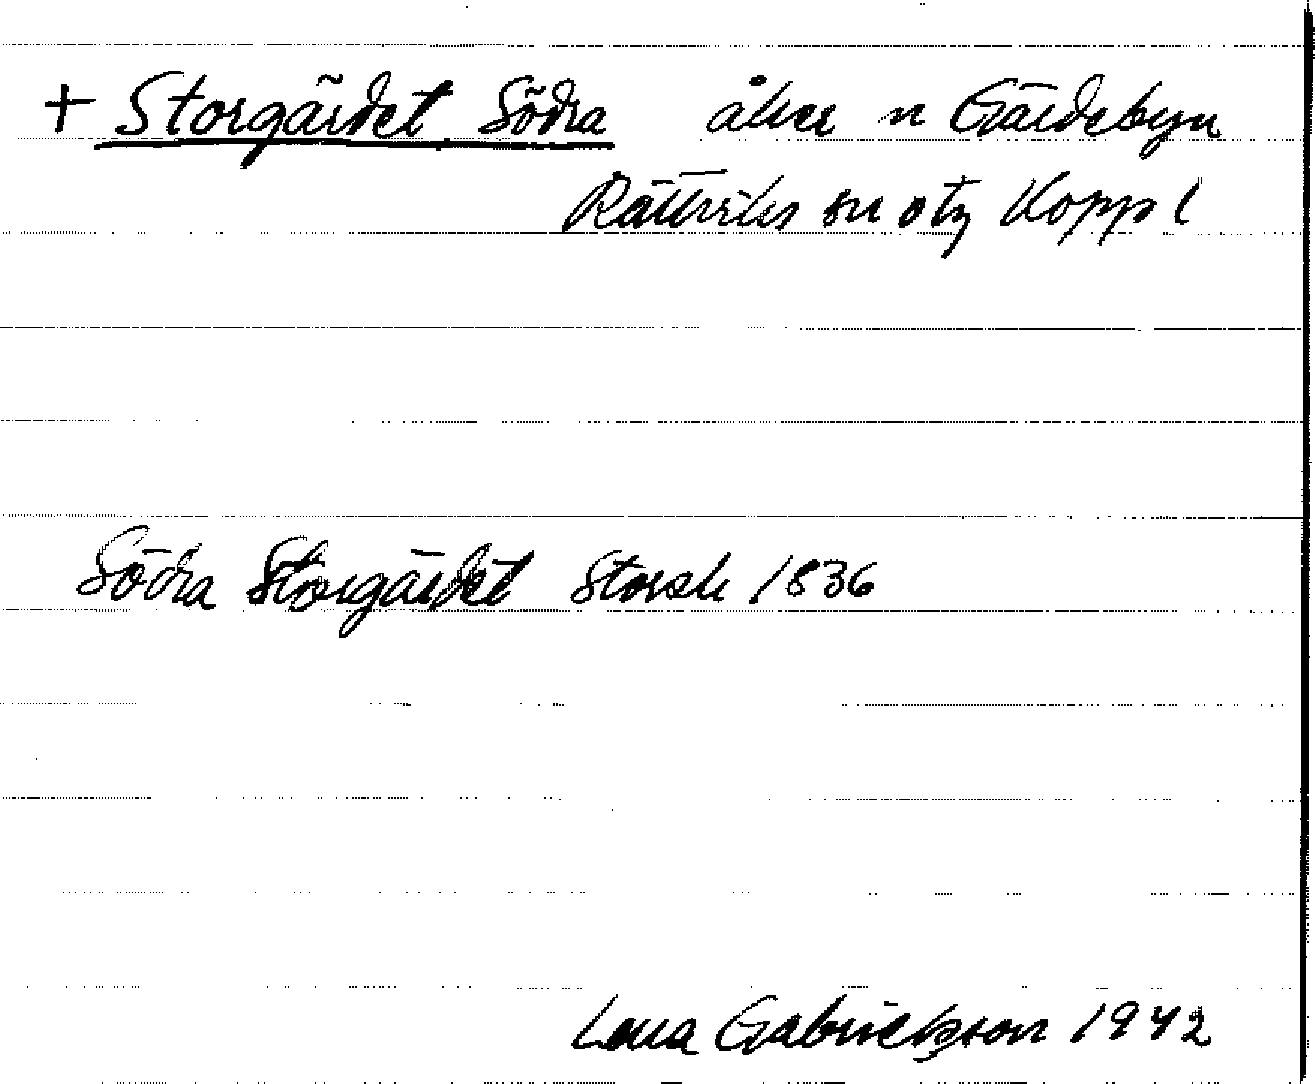 + Storgärdet Södra åker n Gärdebyn
Rättviks sn o tg Koppl
Södra Storgärdet Storsk 1836
Gabrielsson 1942